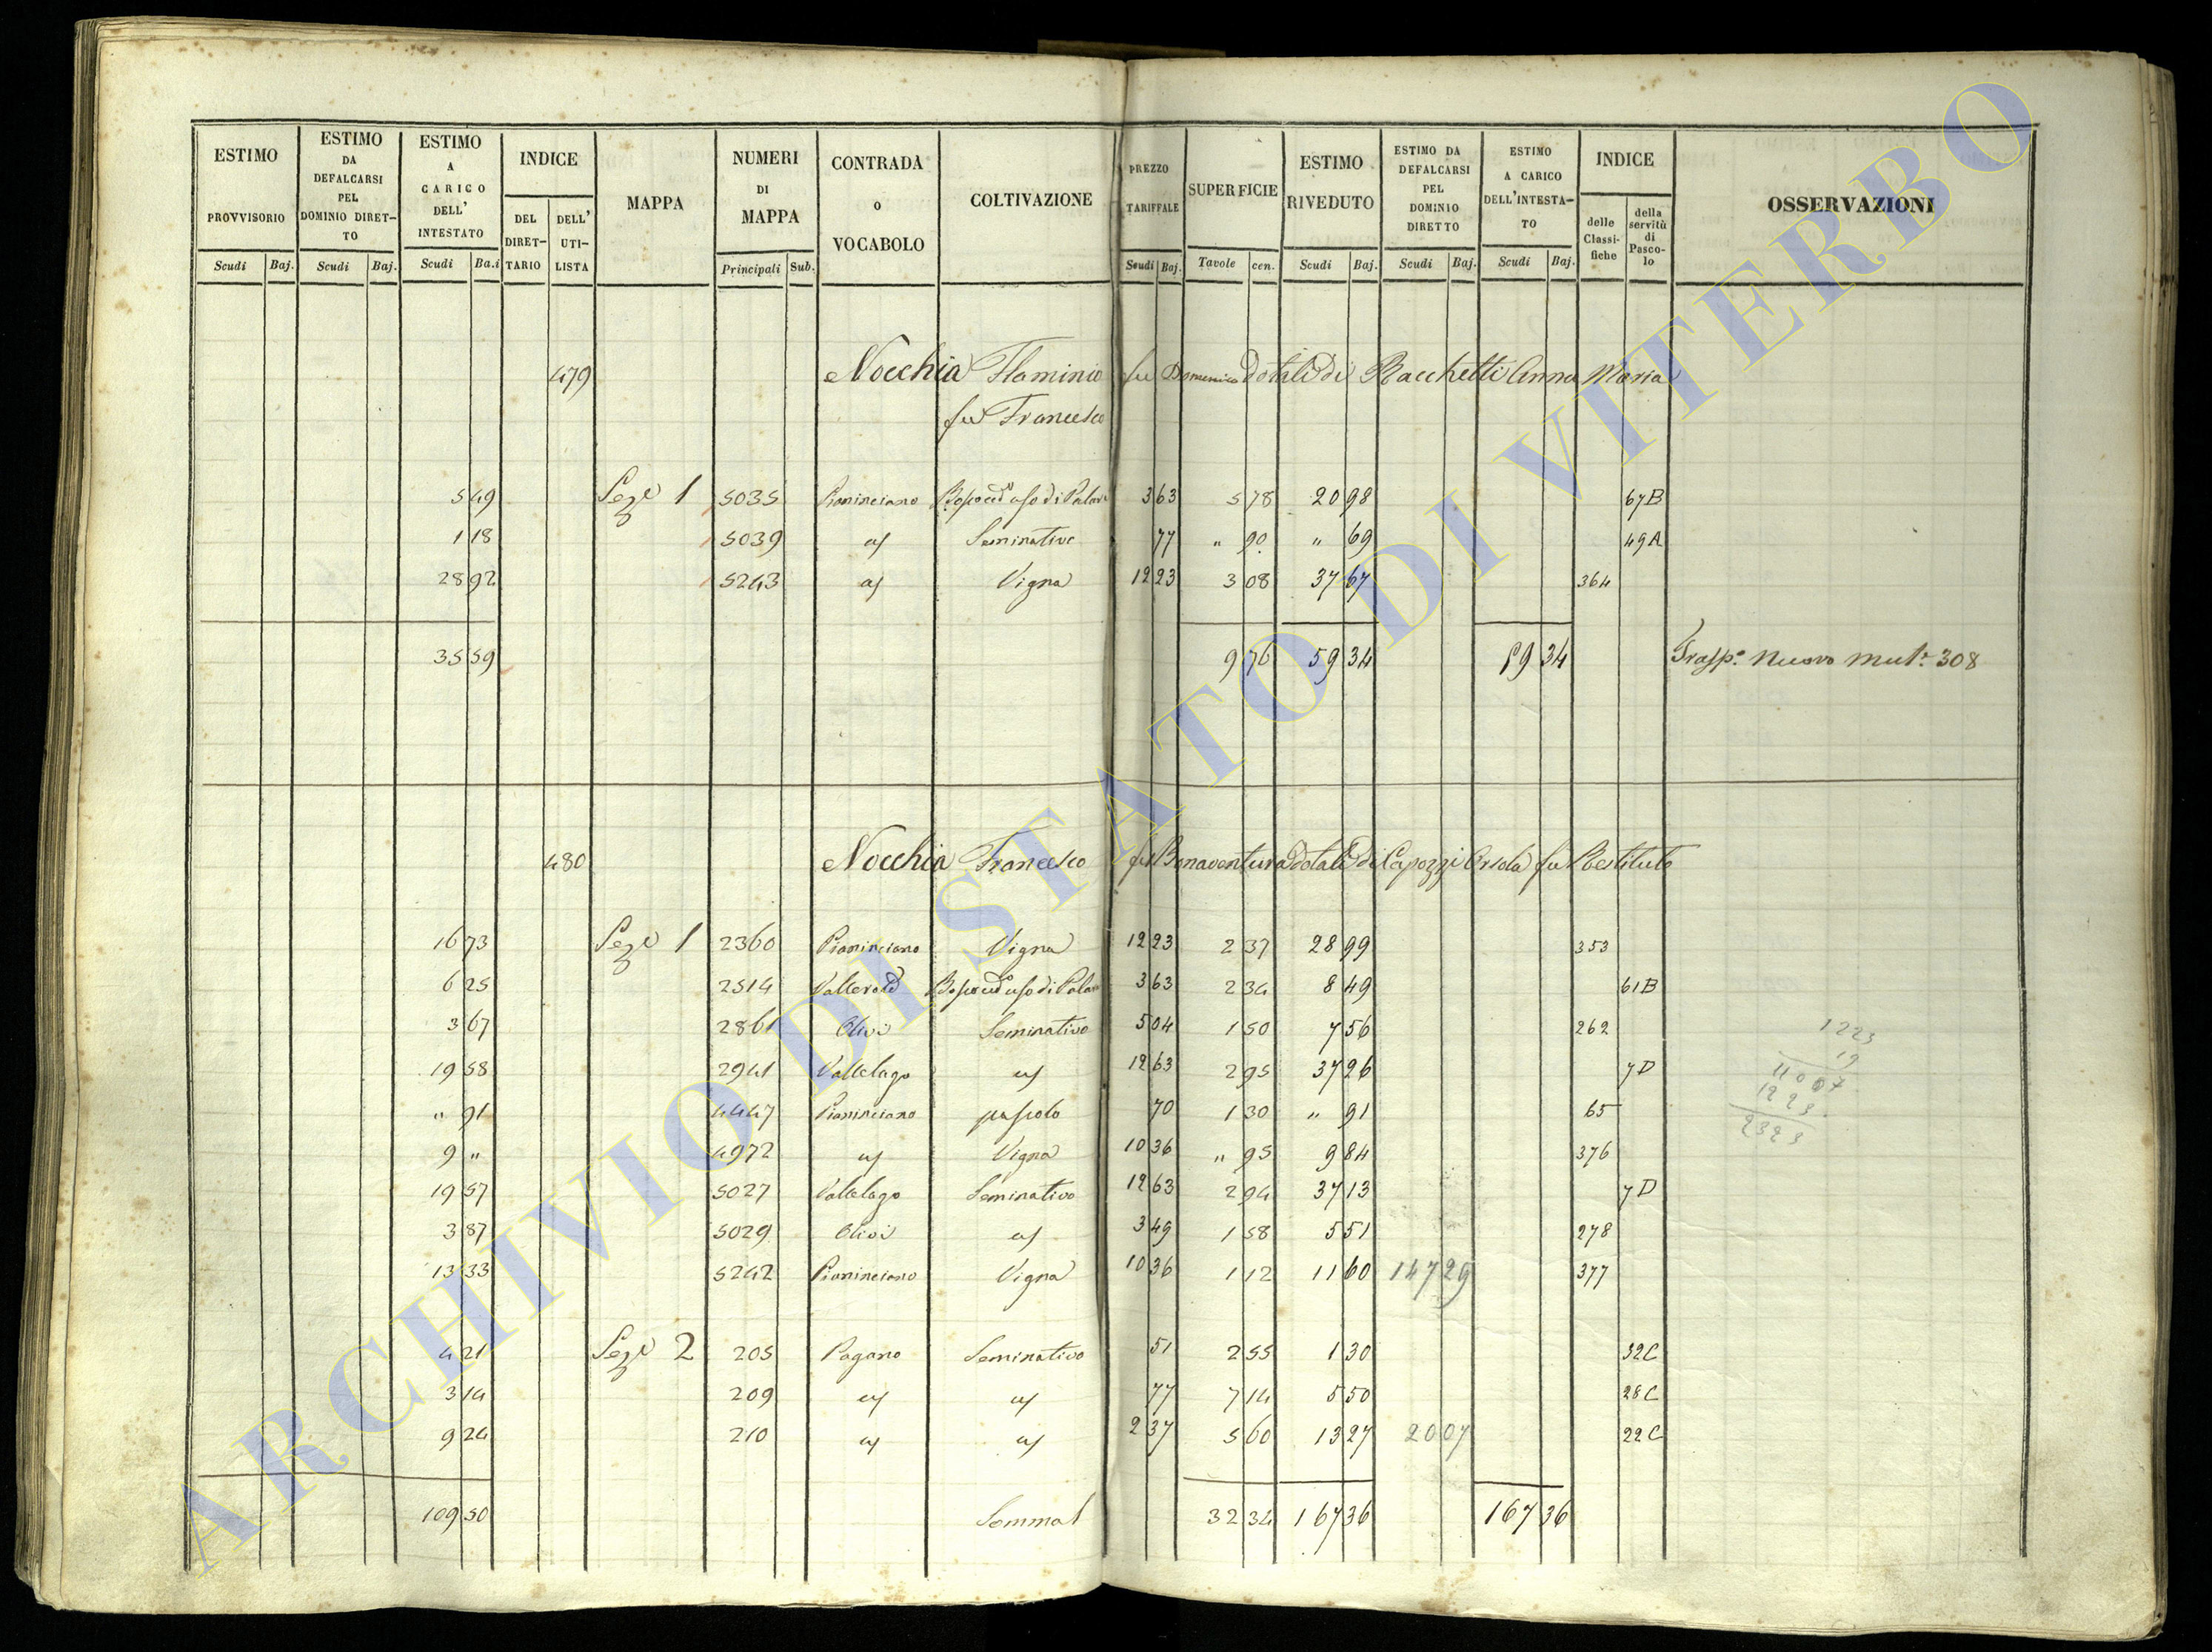 ESTIMO PROVVISORIO Scudi Baj.
ESTIMO DA DEFALCARSI PEL DOMINIO DIRET-TO Scudi Baj.
ESTIMO A CARICO DELL' INTESTATO Scudi Ba.i
INDICE DEL DIRET-TARIO DELL' UTI-LISTA
MAPPA
NUMERI DI MAPPA Principali Sub.
CONTRADA O VOCABOLO
COLTIVAZIONE
PREZZO TARIFFALE Scudi Baj.
SUPERFICIE Tavole cen.
ESTIMO RIVEDUTO Scudi Baj.
ESTIMO DA DEFALCARSI PEL DOMINIO DIRETTO Scudi Baj.
ESTIMO A CARICO DELL'INTESTA-TO Scudi Baj.
INDICE delle Classi-fiche della servitù di Pasco-lo
OSSERVAZIONI
479 Nocchia Flaminio fu Domenico dotali di Racchetti Anna Maria
fu Francesco
5 49 Seze 1 5035 Pianinciano 3 63 5 78 20 98 67B
1 18 5039 as Seminativo 77 " 90 " 69 49A
28 92 5243 as Vigna 12 23 3 08 37 67 364
35 59 9 76 59 34 59 34 Trasp.o nuovo mut.e 308
480 Nocchia Francesco fu Bonaventura dotali di Capozzi Orsola fu Restituto
16 73 Sezе 1 2360 Pianinciano Vigna 12 23 2 37 28 99 353
6 25 2514 3 63 2 34 8 49 61B
3 67 2861 Olivi Seminativo 5 04 1 50 7 56 262
19 58 2941 Vallelago as 12 63 2 95 37 26 7D
" 91 4447 Pianinciano pascolo 70 1 30 " 91 65
9 " 4972 as Vigna 10 36 " 95 9 84 376
19 57 5027 Vallelago Seminativo 12 63 2 94 37 13 7D
3 87 5029 Olivi as 3 49 1 58 5 51 278
13 33 5242 Pianinciano Vigna 10 36 1 12 11 60 147 29 377
4 21 Seze 2 205 Pagano Seminativo 51 2 55 1 30 32C
3 14 209 as as 77 7 14 5 50 28C
9 24 210 as as 2 37 5 60 13 27 20 07 22C
109 50 Somma 32 34 167 36 167 36
1223
19
11007
1223
2323
ARCHIVIO DI STATO DI VITERBO